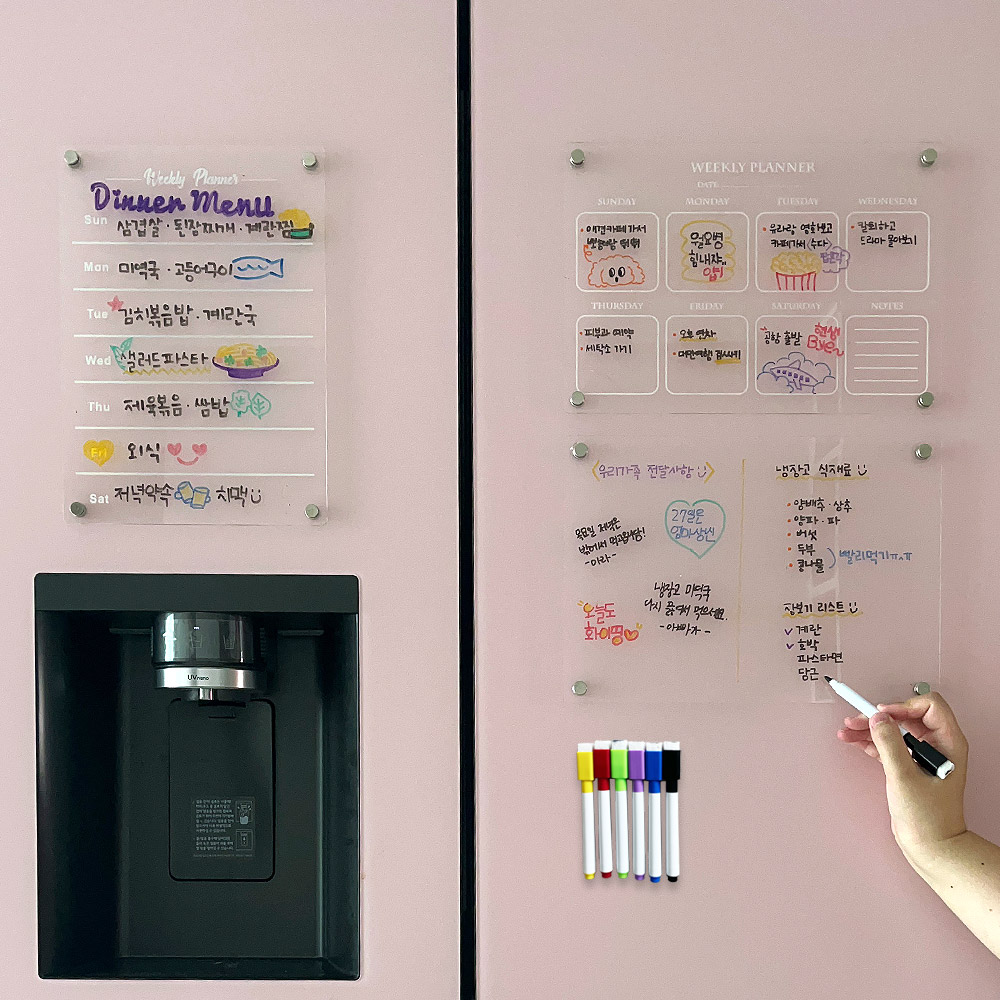 Weekly Planner
Dinner Menu
Sun 삼겹살 · 된장찌개 · 계란찜
Mon 미역국 · 고등어구이
Tue 김치볶음밥 · 계란국
Wed 샐러드파스타
Thu 제육볶음 · 쌈밥
Fri 외식
Sat 저녁약속 치맥
UVnano
WEEKLY PLANNER
DATE
SUNDAY
애견카페 가서
MONDAY
월요병
힘내쟈..
TUESDAY
유라랑 영화보고
카페가서 (수다)
WEDNESDAY
칼퇴하고
드라마 몰아보기
THURSDAY
피부과 예약
세탁소 가기
FRIDAY
오후 연차
대만여행 짐싸기
SATURDAY
공항 출발
현생
Bye~
NOTES
<우리가족 전달사항>
목요일 저녁은
밖에서 먹고옵니당!
-미라-
27일은
엄마생신
냉장고 미역국
다시 끓여서 먹으세요.
-아빠가-
오늘도
화이띵
냉장고 식재료
양배추 · 상추
양파 · 파
버섯
두부
콩나물
빨리먹기ㅠㅠ
장보기 리스트
계란
호박
파스타면
당근